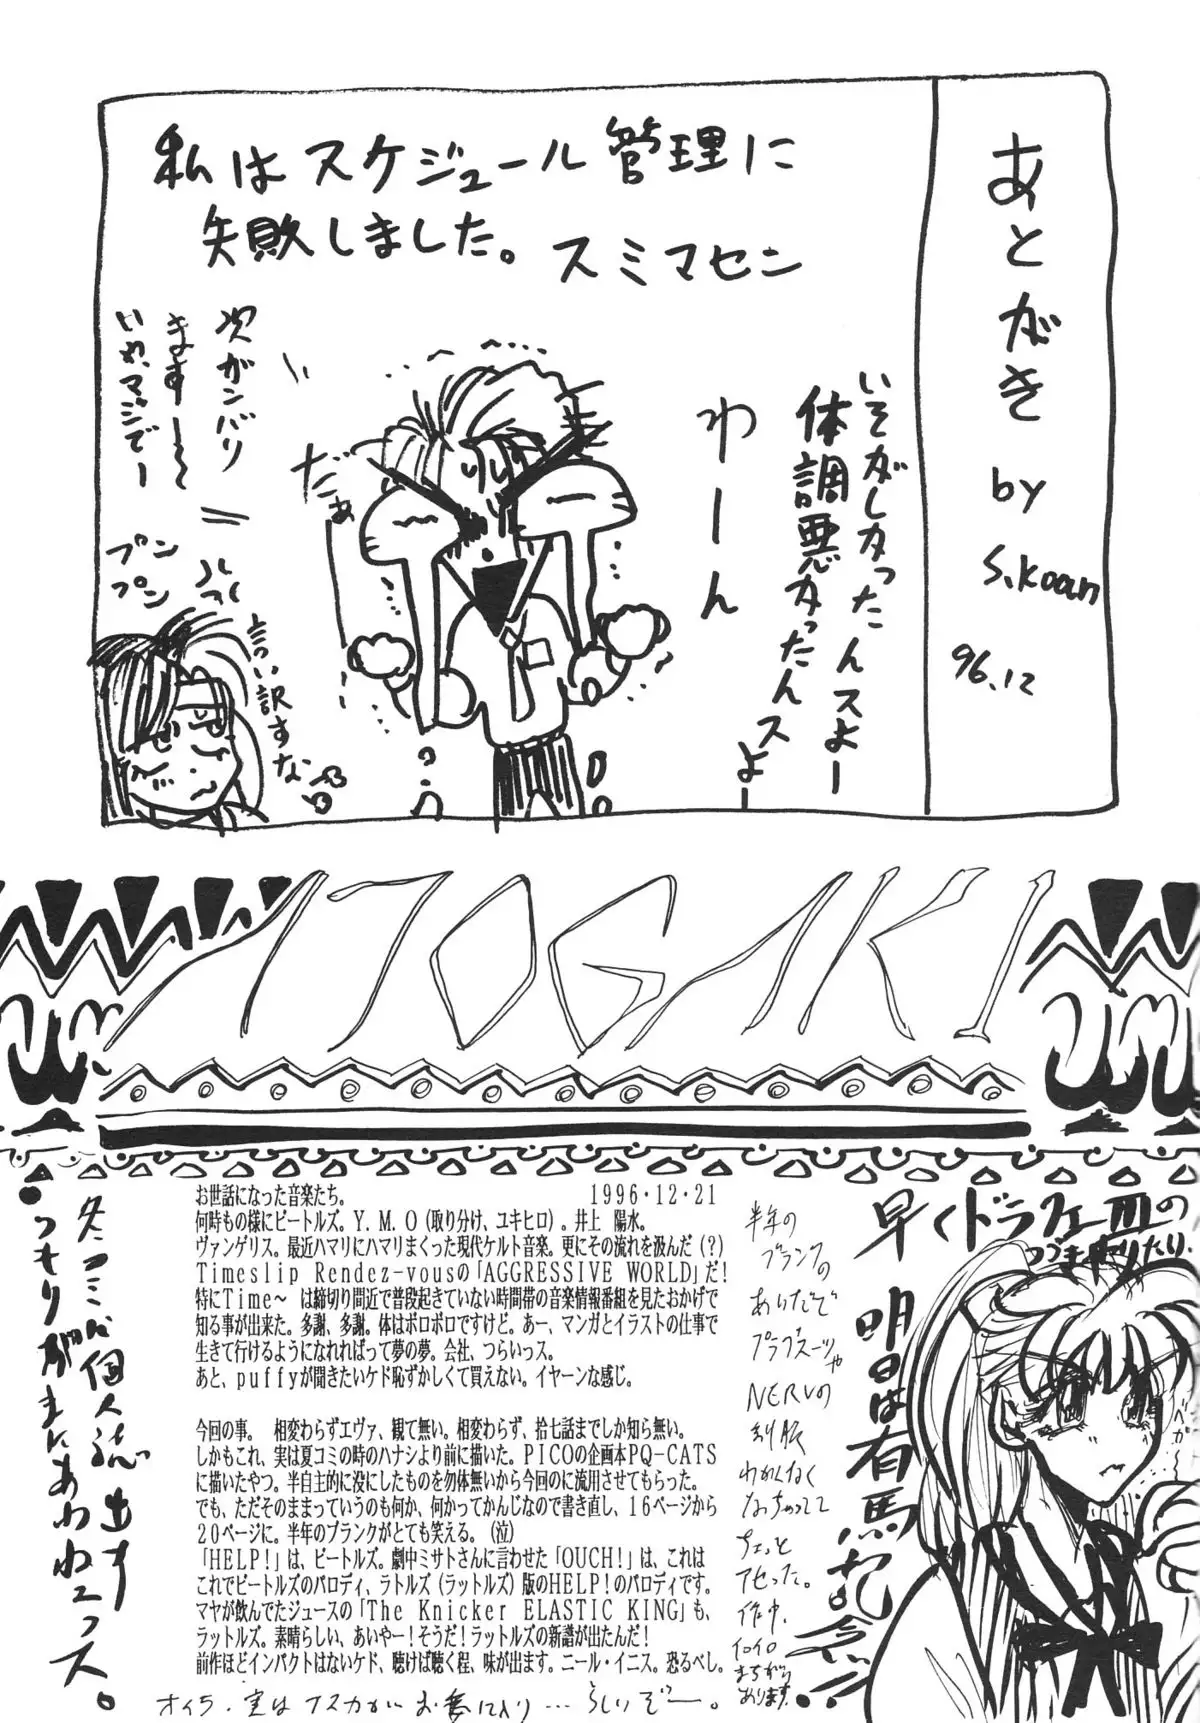 あとがき by S.Koan 96.12
私はスケジュール管理に
失敗しました。スミマセン
いそがしかったんスよー
体調悪かったんスよー
わーん
だぁ
次ガンバリ
ます〜〜
いや、マジでー
プン
プン
言い訳するな
ATOGAKI
早くドラクエⅢの
つづきやりたり、
明日は有馬記念!!
半年の
ブランクの
あいだで
プラグスーツや
NERVの
制服
わかんなく
なっちゃってて
ちょっと
アセった。
作中、
イロイロ
まちがい
あります。
お世話になった音楽たち。 1996・12・21
何時もの様にビートルズ。Y.M.O(取り分け、ユキヒロ)。井上 陽水。
ヴァンゲリス。最近ハマリにハマリまくった現代ケルト音楽。更にその流れを汲んだ(?)
Timeslip Rendez-vousの「AGGRESSIVE WORLD」だ!
特にTime〜 は締切り間近で普段起きていない時間帯の音楽情報番組を見たおかげで
知る事が出来た。多謝、多謝。体はボロボロですけど。あー、マンガとイラストの仕事で
生きて行けるようになれればって夢の夢。会社、つらいっス。
あと、puffyが聞きたいケド恥ずかしくて買えない。イヤーンな感じ。
今回の事。 相変わらずエヴァ、観て無い。相変わらず、拾七話までしか知ら無い。
しかもこれ、実は夏コミの時のハナシより前に描いた。PICOの企画本PQ-CATS
に描いたやつ。半自主的に没にしたものを勿体無いから今回のに流用させてもらった。
でも、ただそのままっていうのも何か、何かってかんじなので書き直し、16ページから
20ページに。半年のブランクがとても笑える。(泣)
「HELP!」は、ビートルズ。劇中ミサトさんに言わせた「OUCH!」は、これは
これでビートルズのパロディ、ラトルズ(ラットルズ)版のHELP!のパロディです。
マヤが飲んでたジュースの「The Knicker ELASTIC KING」も、
ラットルズ。素晴らしい、あいやー!そうだ!ラットルズの新譜が出たんだ!
前作ほどインパクトはないケド、聴けば聴く程、味が出ます。ニール・イニス。恐るべし。
オイラ、実はアスカがお気に入り…らしいぞー。
冬コミに個人誌出す
つもりがまにあわねェっス。